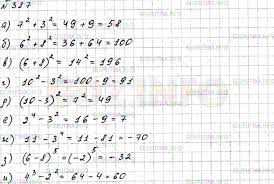 № 387
а) 7² + 3² = 49 + 9 = 58
б) 6² + 8² = 36 + 64 = 100
в) (6 + 8)² = 14² = 196
г) 10² - 3² = 100 - 9 = 91
д) (10 - 3)² = 7² = 49
е) 2⁴ - 3² = 16 - 9 = 7
ж) 11 - 3⁴ = 11 - 81 = -70
з) (6 - 8)⁵ = (-2)⁵ = -32
и) 4³ - 2² = 64 - 4 = 60